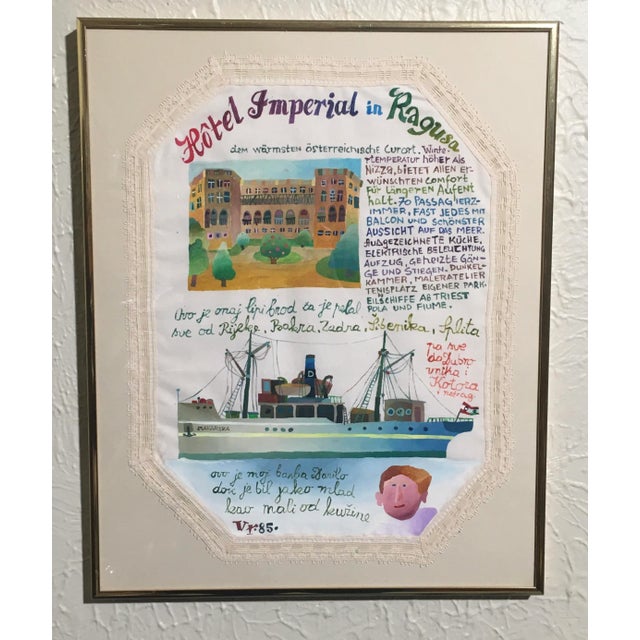 Hôtel Imperial in Ragusa
dem wärmsten österreichische Curort. Winter-
temperatur höher als
Nizza, bietet allen er-
wünschten comfort
für längeren Aufent
halt. 70 PASSAGIERZ-
IMMER, FAST JEDES MIT
BALCON UND SCHÖNSTER
AUSSICHT AUF DAS MEER.
AUSGEZEICHNETE KÜCHE,
ELEKTRISCHE BELEUCHTUNG
AUFZUG, GEHEIZTE GÄN-
GE UND STIEGEN. DUNKEL-
KAMMER, MALERATELIER
TENISPLATZ EIGENER PARK.
EILSCHIFFE AB TRIEST
POLA UND FIUME.
Ovo je onaj lipi brod ča je pelal
sve od Rijeke, Bakra, Zadra, Šibenika, Splita
pa sve
do Dubro
vnika i
Kotora
i natrag
MAKARSKA
D
ovo je moj barba Danilo
dok je bil jako mlad
kao mali od kužine
Vr. 85.